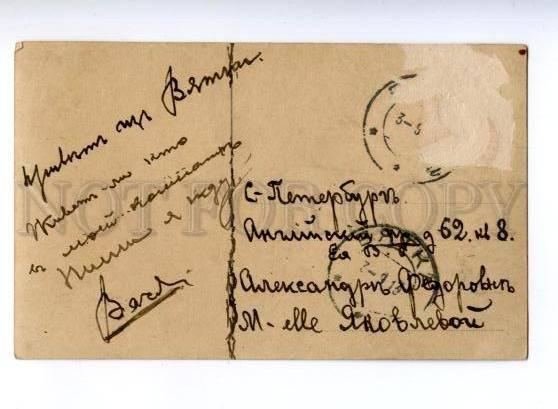 Привѣтъ изъ Вятки.
Живетъ-ли кто
въ моей комнатѣ
Пиши я жду
Вася.
С-Петербургъ.
Англійскій пр. д 62. кв 8.
Ея В. Б.
Александрѣ Федоровнѣ
M-elle Яковлевой
NOT FOR COPY